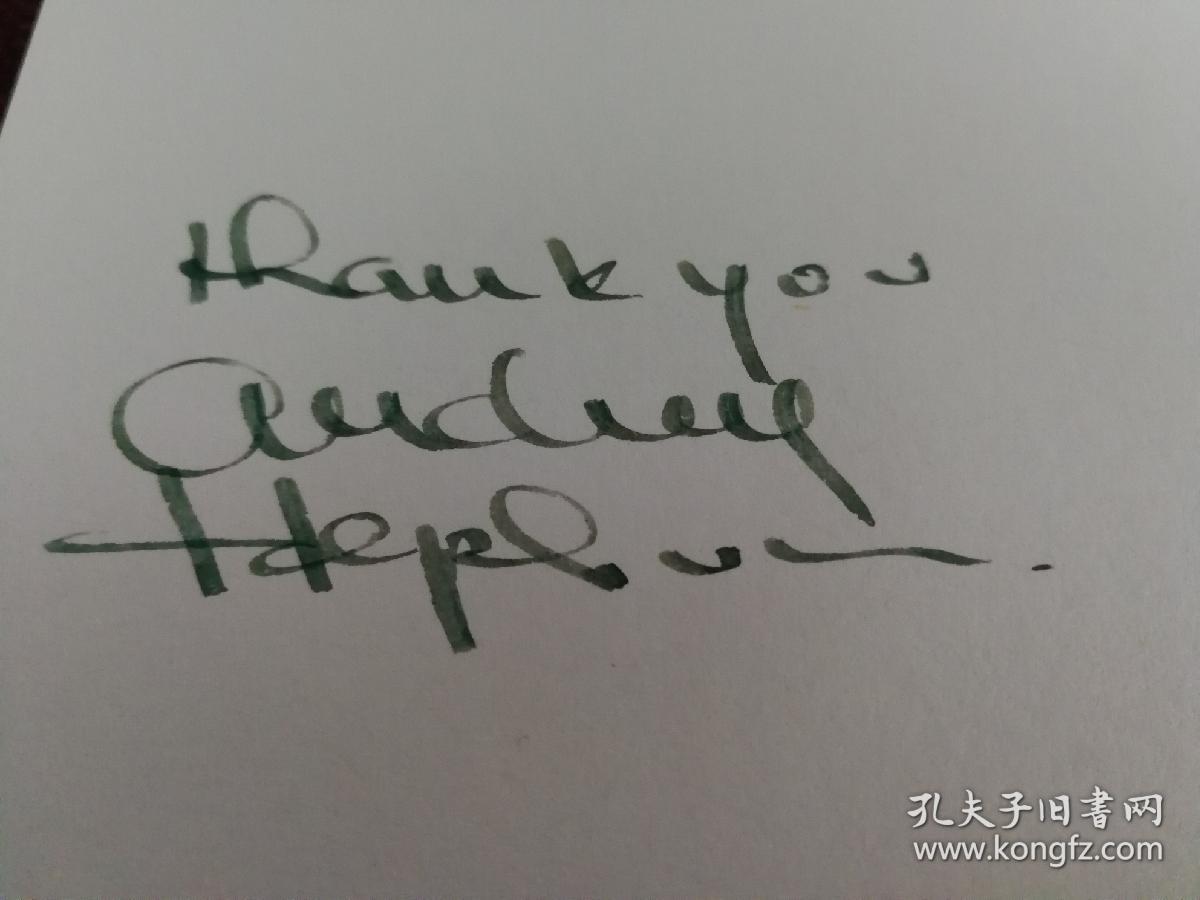 Thank you
Audrey
Hepburn.
孔夫子旧书网
www.kongfz.com